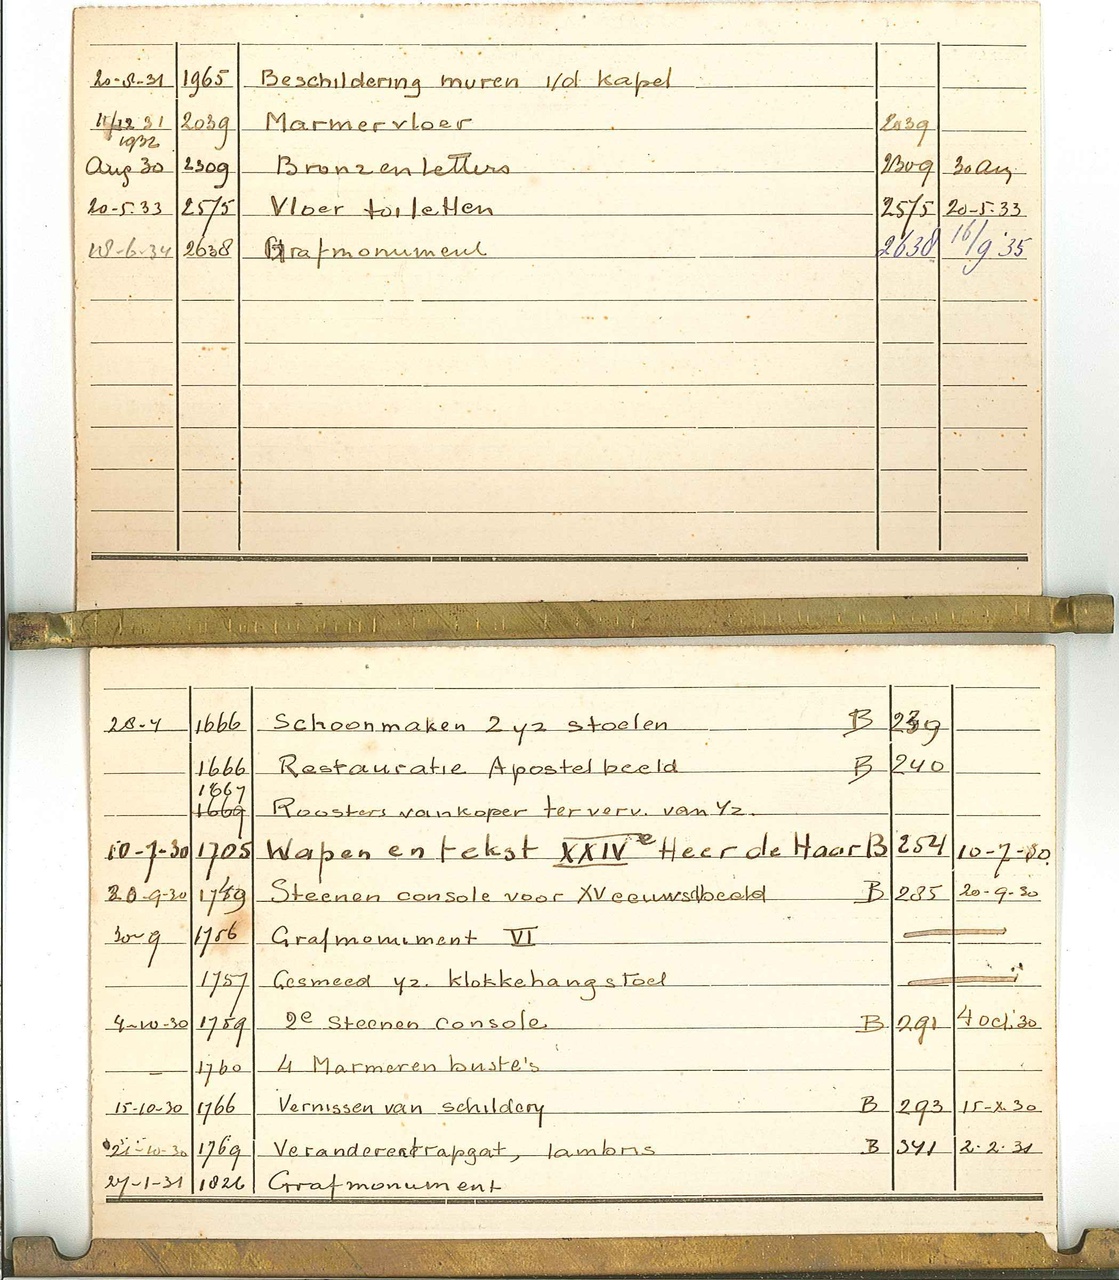 20-8-31 1965 Beschildering muren i/d kapel
11/12 31 2039 Marmervloer 2039
1932
Aug 30 2309 Bronzen letters 2309 30 Aug
20-5-33 2515 Vloer toiletten 2515 20-5-33
18-6-34 2638 Grafmonument 2638 16/9 '35
28-4 1666 Schoonmaken 2 yz stoelen B 239
1666 Restauratie Apostelbeeld B 240
1667
1669 Roosters van koper ter verv. van Yz.
10-7-30 1705 Wapen en tekst XXIVe Heer de Haar B 254 10-7-30.
20-9-30 1749 Steenen console voor XVeeuwsbeeld B 285 20-9-30
30-9 1756 Grafmonument VI
1757 Gesmeed yz. klokkehangstoel
4-10-30 1759 2e Steenen console B 291 4 oct. 30
1760 4 Marmeren buste's
15-10-30 1766 Vernissen van schildery B 293 15-X-30
21-10-30 1769 Veranderen trapgat, lambris B 341 2-2-31
27-1-31 1826 Grafmonument